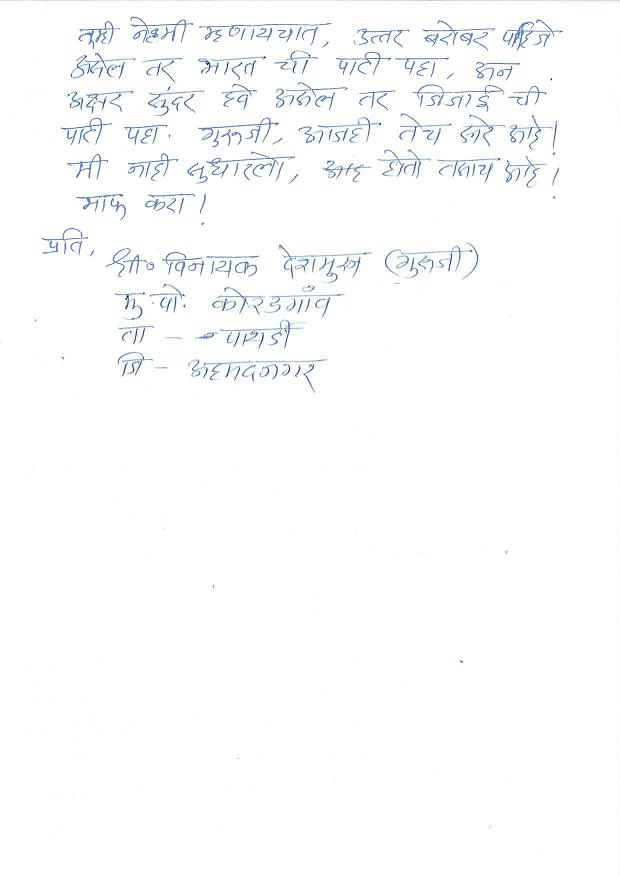 तुम्ही नेहमी म्हणायचात, उत्तर बरोबर पाहिजे
असेल तर भारत ची पाटी पहा, अन
अक्षर सुंदर हवे असेल तर जिजाई ची
पाटी पहा. गुरुजी, आजही तेच खरे आहे।
मी नाही सुधारलो, होतो तसाच आहे।
माफ करा।
प्रति,
श्री॰ विनायक देशमुख (गुरुजी)
मु. पो. कोरडगाँव
ता - पाथर्डी
जि - अहमदनगर